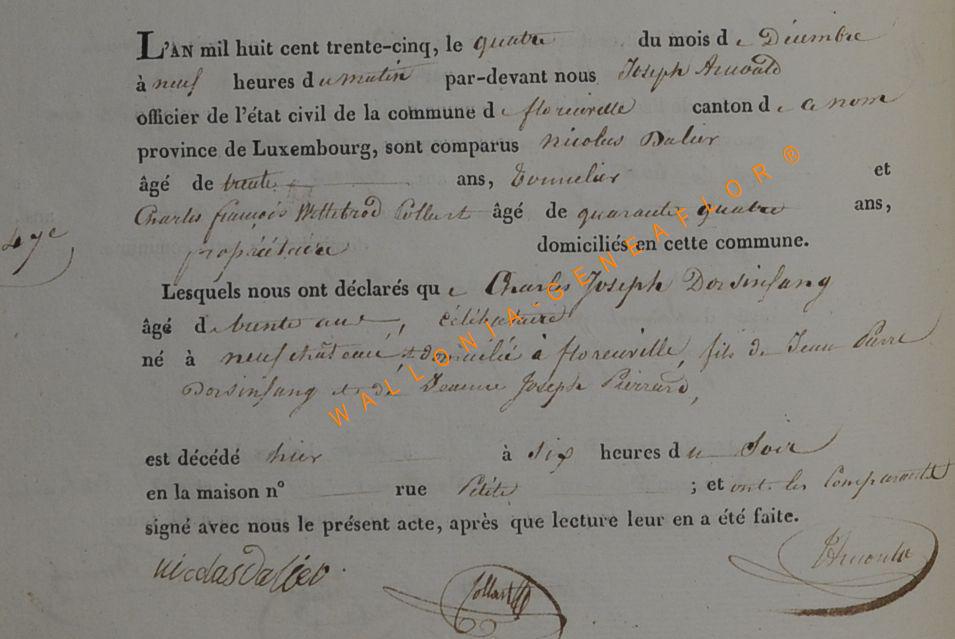 L'AN mil huit cent trente-cinq, le quatre du mois de Décembre
à neuf heures du matin par-devant nous Joseph Arnould
officier de l'état civil de la commune de florenville canton de ce nom
province de Luxembourg, sont comparus nicolas Dalier
âgé de trente ans, Tonnelier et
Charles françois Collart âgé de quarante quatre ans,
propriétaire domiciliés en cette commune.
Lesquels nous ont déclarés que Charles Joseph Dorsinfang
âgé de trente ans, célibataire
né à neufchateau, domicilié à florenville, fils de Jean Pierre
Dorsinfang et de Jeanne Joseph Pierrard,
est décédé hier à six heures du Soir
en la maison nº rue Petite ; et ont les Comparants
signé avec nous le présent acte, après que lecture leur en a été faite.
nicolas Dalier Collart JArnould
WALLONIA-GENEAFLOR®